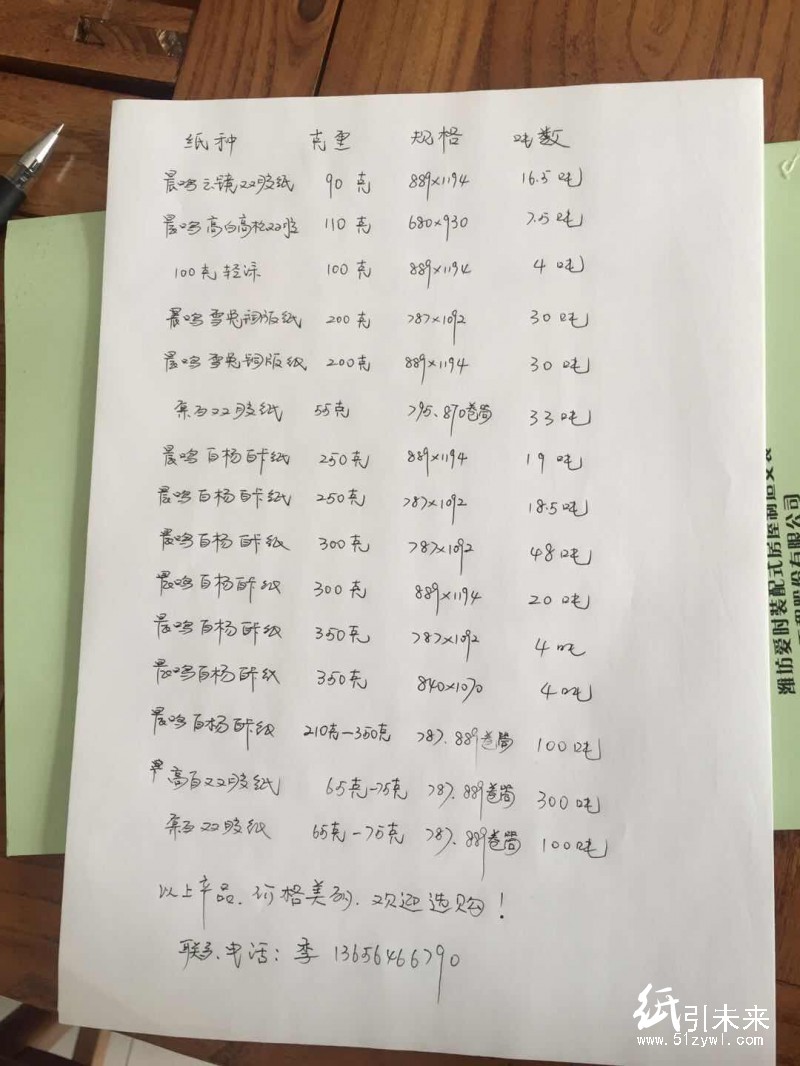 纸种 克重 规格 吨数
晨鸣云镜双胶纸 90克 889×1194 16.5吨
晨鸣高白高松双胶 110克 680×930 7.5吨
100克轻涂 100克 889×1194 4吨
晨鸣雪兔铜版纸 200克 787×1092 30吨
晨鸣雪兔铜版纸 200克 889×1194 30吨
双胶纸 55克 795、870卷筒 33吨
晨鸣白杨白卡纸 250克 889×1194 19吨
晨鸣白杨白卡纸 250克 787×1092 18.5吨
晨鸣白杨白卡纸 300克 787×1092 48吨
晨鸣白杨白卡纸 300克 889×1194 20吨
晨鸣白杨白卡纸 350克 787×1092 4吨
晨鸣白杨白卡纸 350克 840×1070 4吨
晨鸣白杨白卡纸 210克-350克 787、889卷筒 100吨
高白双胶纸 65克-75克 787、889卷筒 300吨
双胶纸 65克-75克 787、889卷筒 100吨
以上产品、价格美丽、欢迎选购！
联系电话：季 13656466790
潍坊爱时装配式房屋制造安装
工程股份有限公司
纸引未来
www.51zywl.com